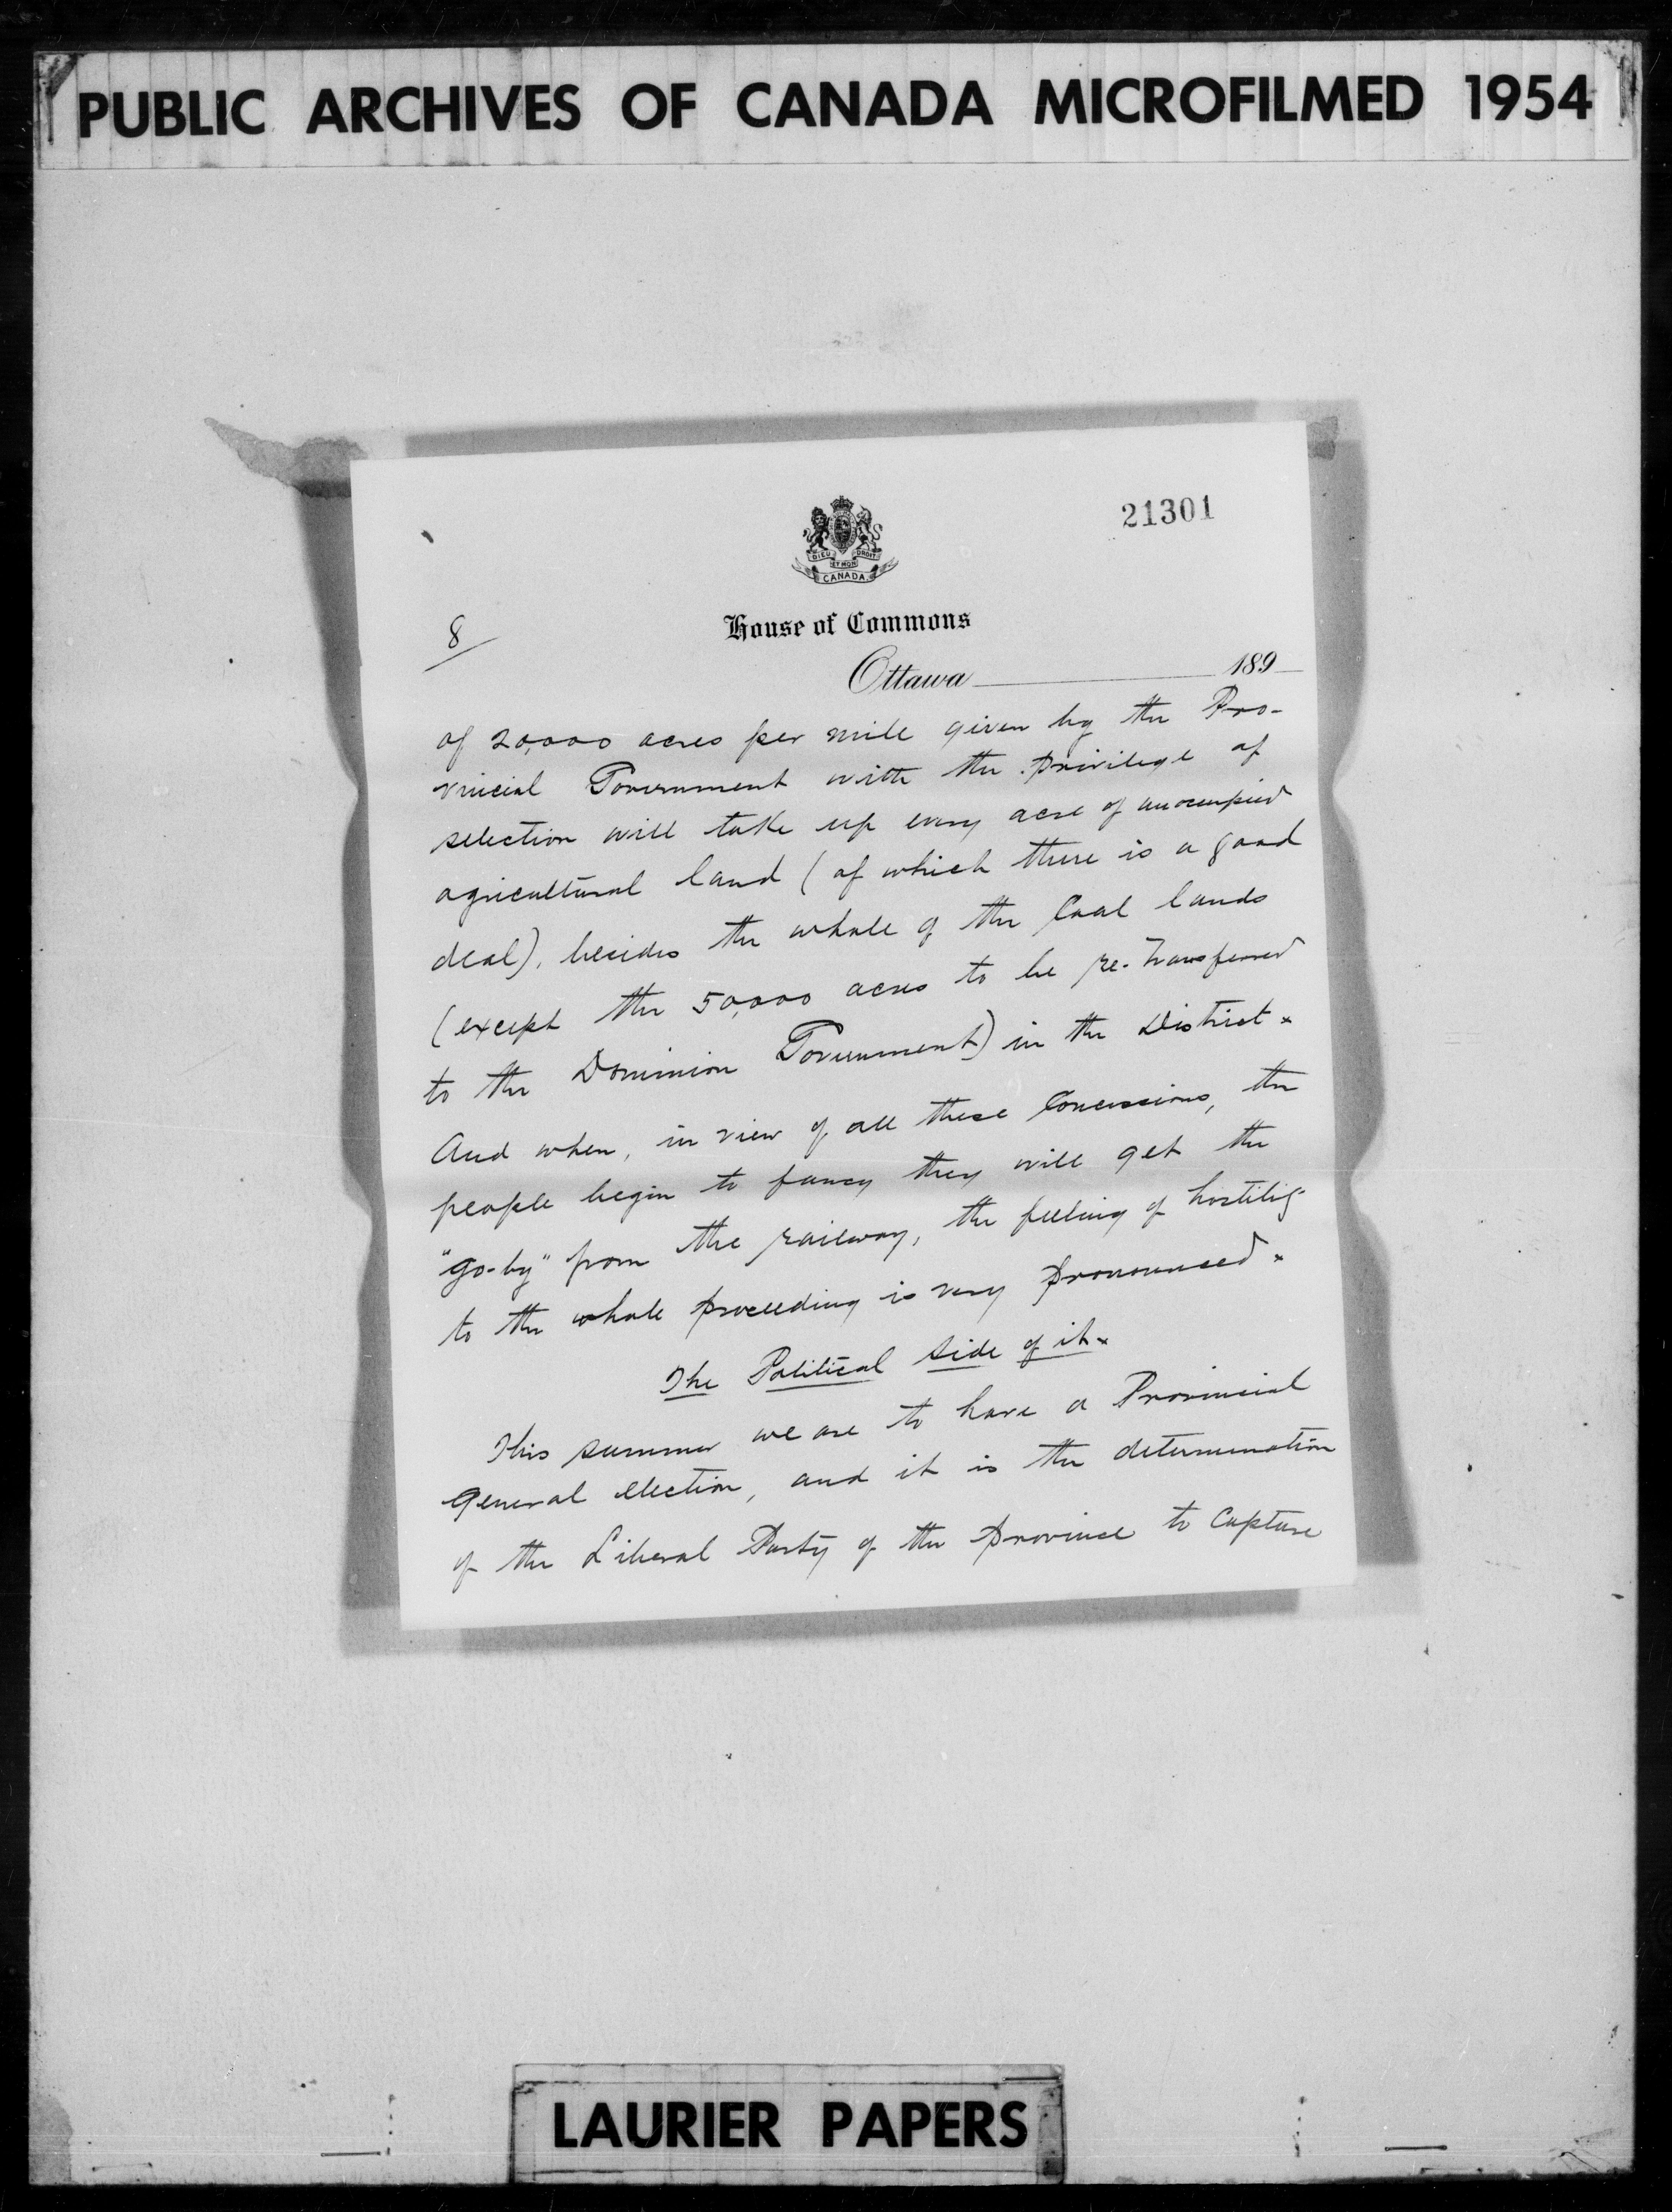 PUBLIC ARCHIVES OF CANADA MICROFILMED 1954
21301
DIEU ET MON DROIT
CANADA
8
House of Commons
Ottawa 189
of 20,000 acres per mile given by the Pro-
vincial Government with the privilege of
selection will take up every acre of unoccupied
agricultural land (of which there is a good
deal), besides the whole of the Coal lands
(except the 50,000 acres to be re-transferred
to the Dominion Government) in the District.
And when, in view of all these Concessions, the
people begin to fancy they will get the
"go-by" from the railway, the feeling of hostility
to the whole proceeding is very pronounced.
The Political Side of it.
This summer we are to have a Provincial
General election, and it is the determination
of the Liberal Party of the Province to Capture
LAURIER PAPERS